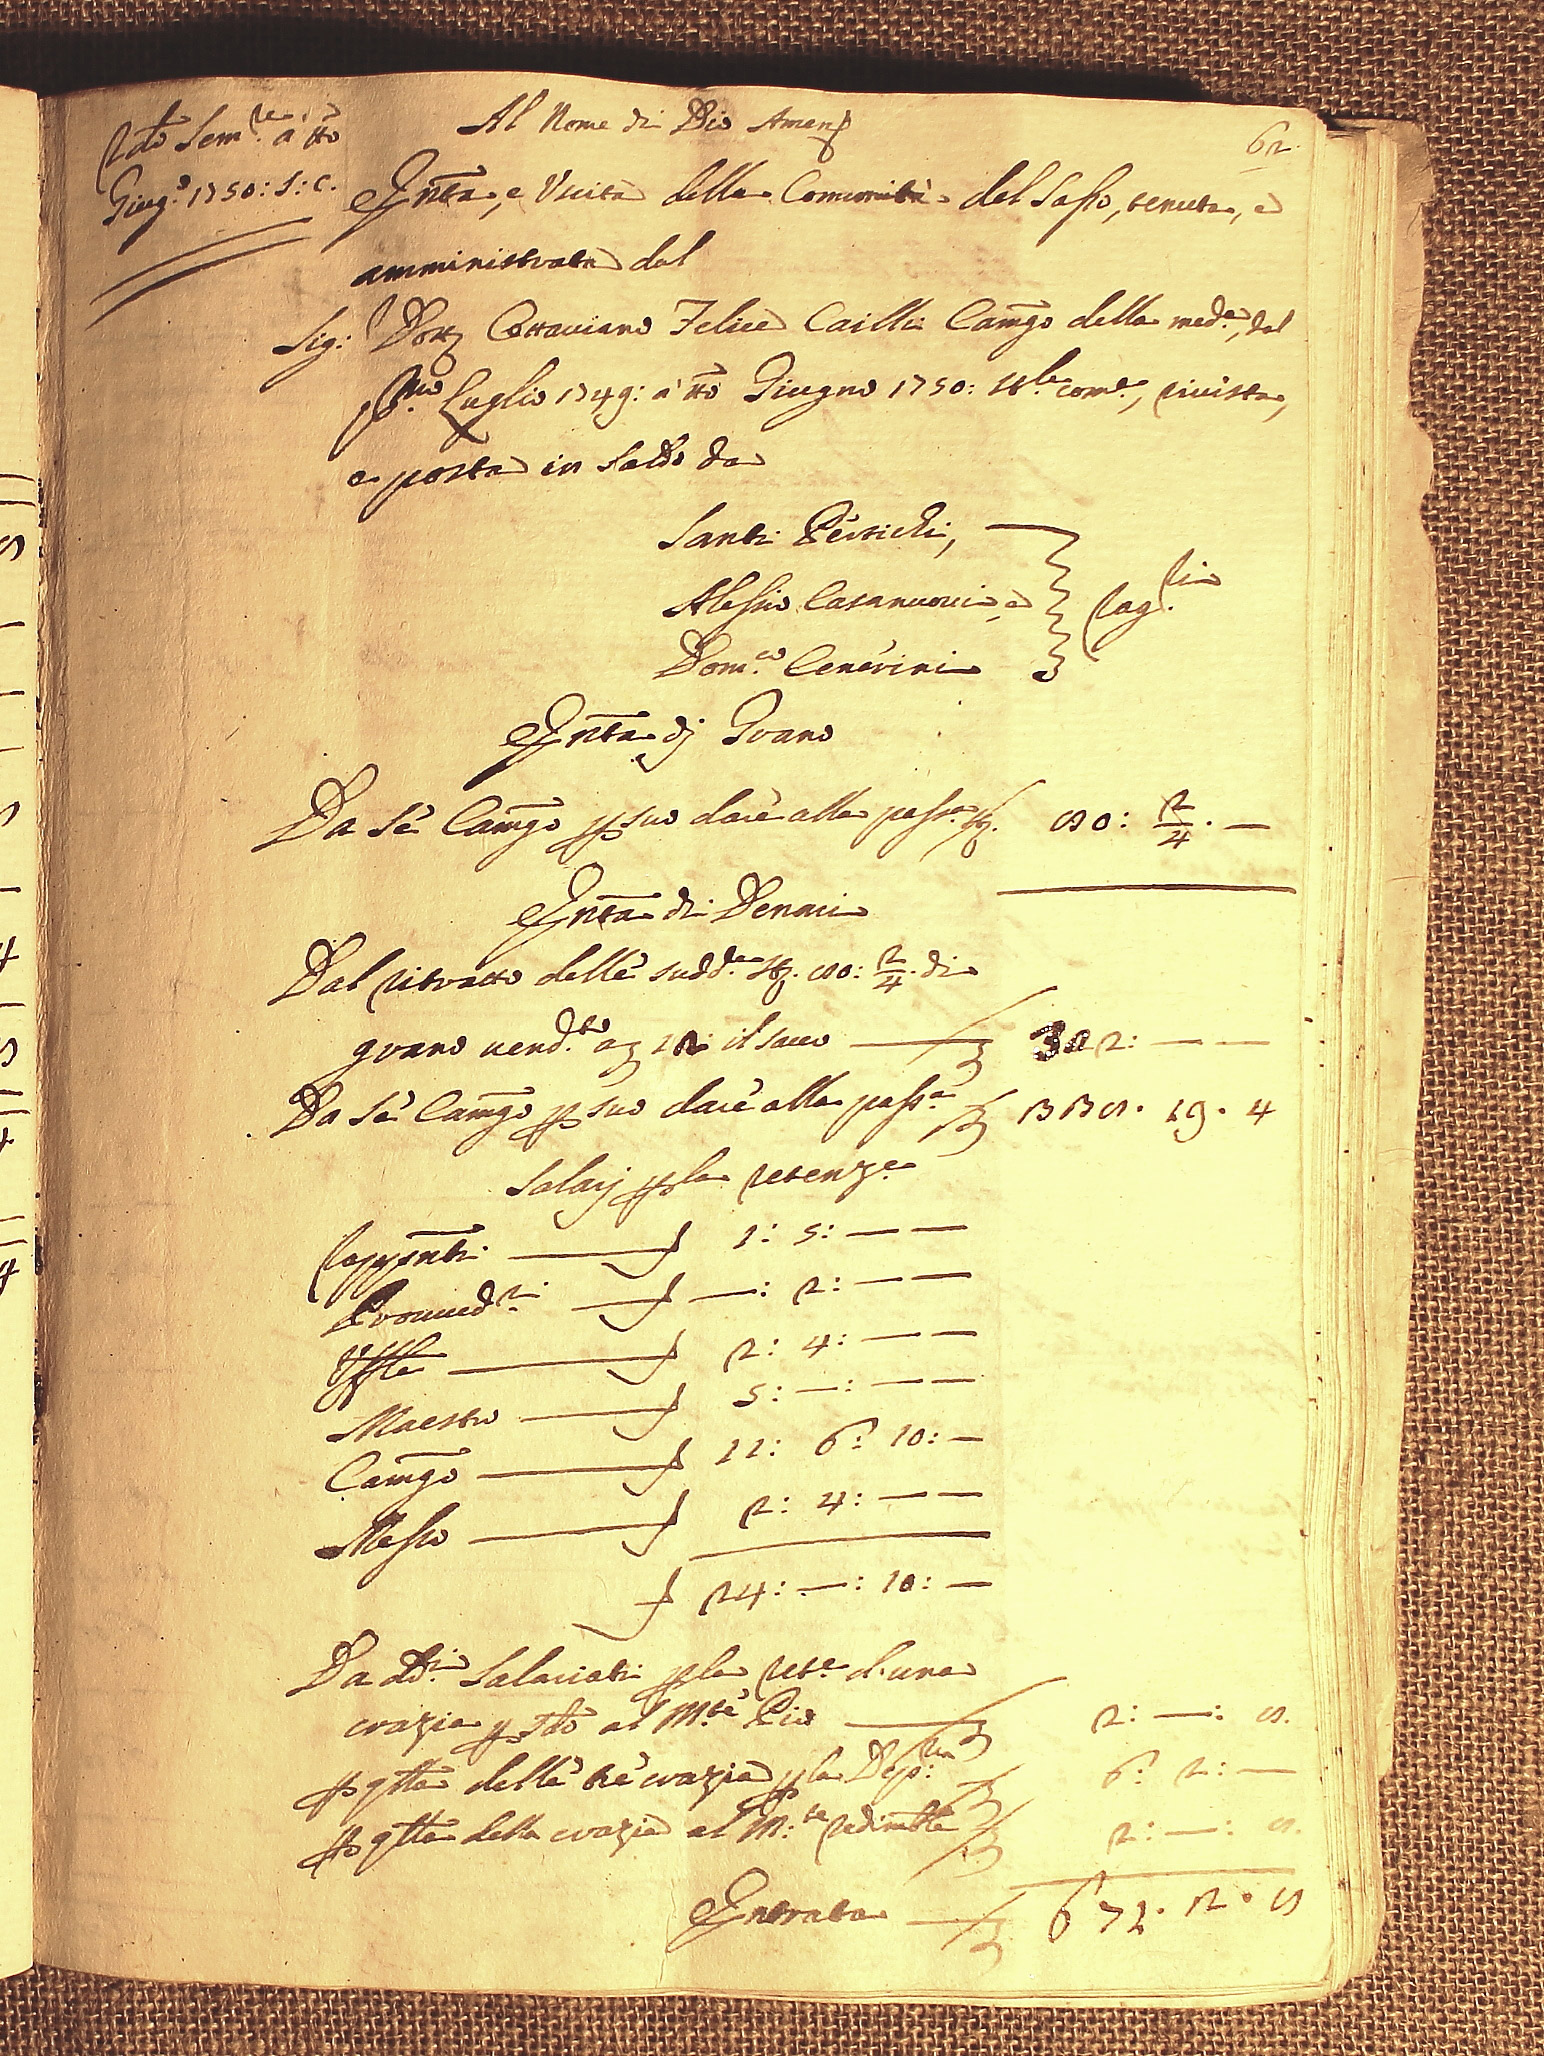 Rdto Sem.re a tto
Giug.o 1750: S: C.
Al Nome di Dio Amen
62
Entta, e Uscita della Comunità del Sasso, tenuta, e
amministrata dal
Sig: Dott Ottaviano Felice Cailli Camgo della med.a, dal
p.mo Luglio 1749: a tto Giugno 1750: St.le com.e, rivista,
e posta in Saldo da
Santi Pertichi,
Alessio Casanuovi, e
Dom.co Cenerini
Rag.ri
Entta di Grano
Da Sé Camgo p suo dare alla pass.a st. 80: 2/4. —
Entta di Denari
Dal ritratto delle sudd.e st. 80: 2/4. di
grano vend.to a 12 il sacco — 322: — —
Da Sé Camgo p suo dare alla pass.a 338. 19. 4
Salarj p la retenz.e
Rappntti — 1: 5: — —
Provved.ri — —: 2: — —
Uffle — 2: 4: — —
Maestro — 5: —: — —
Camgo — 11: 6: 10: —
Messo — 2: 4: — —
24: —: 10: —
Da dd.i Salariati p la ret.e d'una
crazia p sdo al M.te Pio — 2: —: 8.
p qtta delle tré crazie p la Dep.ria 6: 2: —
p qtta della crazia al M.te redimble 2: —: 8.
Entrata — 671. 2. 8